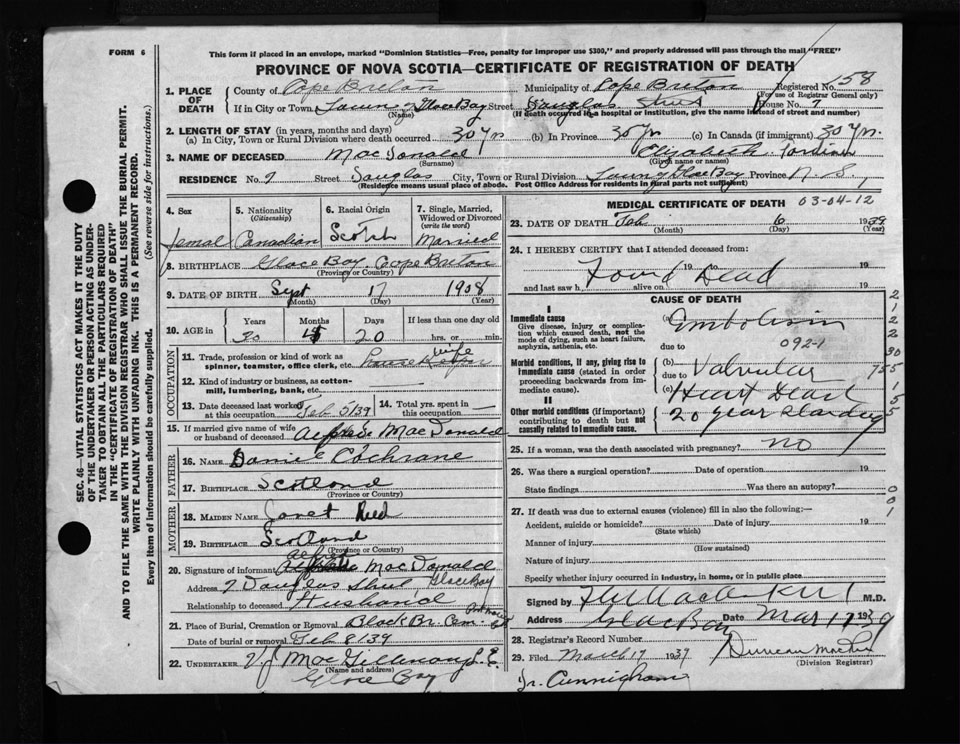 FORM 6
This form if placed in an envelope, marked "Dominion Statistics—Free, penalty for improper use $300," and properly addressed will pass through the mail "FREE"
PROVINCE OF NOVA SCOTIA—CERTIFICATE OF REGISTRATION OF DEATH
1. PLACE OF DEATH
County of Cape Breton Municipality of Cape Breton Registered No. 158
(For use of Registrar General only)
If in City or Town Town of Glace Bay Street Douglas Street House No. 7
(Name) (If death occurred in a hospital or institution, give the name instead of street and number)
2. LENGTH OF STAY (in years, months and days)
(a) In City, Town or Rural Division where death occurred 30 yrs (b) In Province 30 yrs (c) In Canada (if immigrant) 30 yrs.
3. NAME OF DECEASED MacDonald Elizabeth
(Surname) (Given name or names)
RESIDENCE No 7 Street Douglas City, Town or Rural Division Town Glace Bay Province N.S.
(Residence means usual place of abode. Post Office Address for residents in rural parts not sufficient)
SEC. 46—VITAL STATISTICS ACT MAKES IT THE DUTY
OF THE UNDERTAKER OR PERSON ACTING AS UNDER-
TAKER TO OBTAIN ALL THE PARTICULARS REQUIRED
IN THE "CERTIFICATE OF REGISTRATION OF DEATH"
AND TO FILE THE SAME WITH THE DIVISION REGISTRAR WHO SHALL ISSUE THE BURIAL PERMIT.
WRITE PLAINLY WITH UNFADING INK. THIS IS A PERMANENT RECORD.
Every item of information should be carefully supplied. (See reverse side for instructions.)
4. Sex
Femal
5. Nationality
(Citizenship)
Canadian
6. Racial Origin
Scotch
7. Single, Married, Widowed or Divorced
(write the word)
Married
8. BIRTHPLACE Glace Bay Cape Breton
(Province or Country)
9. DATE OF BIRTH Sept 17 1908
(Month) (Day) (Year)
10. AGE in
Years Months Days If less than one day old
30 4 20 hrs. or min.
OCCUPATION
11. Trade, profession or kind of work as
spinner, teamster, office clerk, etc. House wife
12. Kind of industry or business, as cotton-
mill, lumbering, bank, etc.
13. Date deceased last worked
at this occupation Feb 5/39
14. Total yrs. spent in
this occupation —
15. If married give name of wife
or husband of deceased Alfred MacDonald
FATHER
16. NAME Daniel Cochrane
17. BIRTHPLACE Scotland
(Province or Country)
MOTHER
18. MAIDEN NAME Janet Reed
19. BIRTHPLACE Scotland
(Province or Country)
20. Signature of informant Alfred MacDonald
Address 7 Douglas Street Glace Bay
Relationship to deceased Husband
21. Place of Burial, Cremation or Removal Black Br. Cem.
Date of burial or removal Feb 8/39
22. UNDERTAKER V.J. MacGillivray
(Name and address)
Glace Bay
MEDICAL CERTIFICATE OF DEATH 03-04-12
23. DATE OF DEATH Feb 6 1939
(Month) (Day) (Year)
24. I HEREBY CERTIFY that I attended deceased from:
19 to 19
Found Dead
and last saw h alive on 19
CAUSE OF DEATH
I
Immediate cause
Give disease, injury or complica-
tion which caused death, not the
mode of dying, such as heart failure,
asphyxia, asthenia, etc.
(a) Embolism
due to 092-1
Morbid conditions, if any, giving rise to
immediate cause (stated in order
proceeding backwards from im-
mediate cause).
(b)
due to Valvular
(c) Heart
II
Other morbid conditions (if important)
contributing to death but not
causally related to immediate cause.
20 year standing
25. If a woman, was the death associated with pregnancy? no
26. Was there a surgical operation? Date of operation 19
State findings Was there an autopsy?
27. If death was due to external causes (violence) fill in also the following:—
Accident, suicide or homicide? Date of injury 19
(State which)
Manner of injury
(How sustained)
Nature of injury
Specify whether injury occurred in industry, in home, or in public place
Signed by M.D.
Address Glace Bay Date Mar 17 1939
28. Registrar's Record Number
29. Filed March 17 1939
(Division Registrar)
Jr. Cunnigham